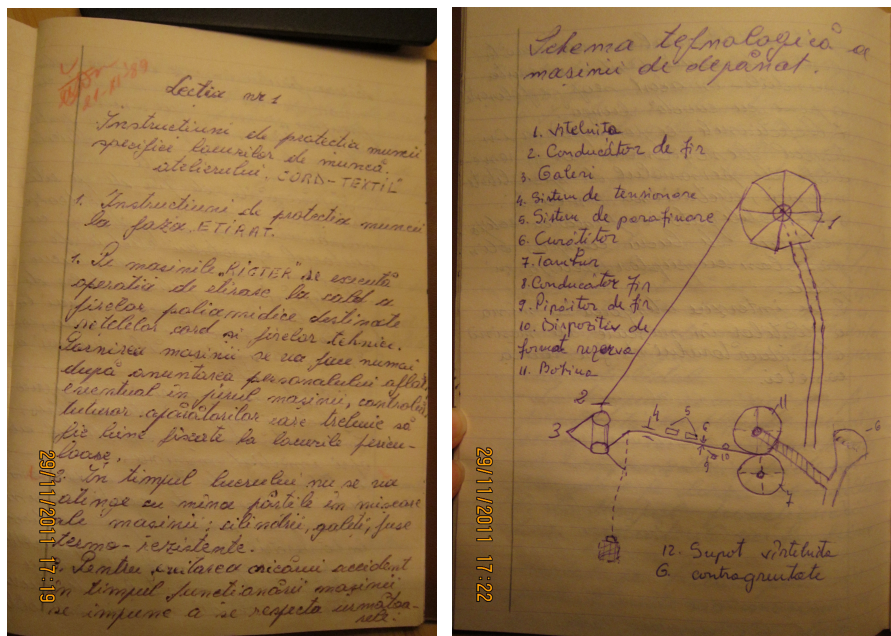 21.XI.89
Lectia nr 1
Instructiuni de protectia muncii
specifice locurilor de muncă
atelierului. CORD-TEXTIL
1. Instructiuni de protectia muncii
la faza ETIRAT.
1. Pe masinile "RIGTER" se execută
operatia de etirare la cald a
firelor poliamidice destinate
retelelor cord si firelor tehnice.
Pornirea masinii se va face numai
după anuntarea personalului aflat,
eventual in jurul masinii, controlul
tuturor apărătorilor care trebuie să
fie bine fixate la locurile pericu-
loase.
2. In timpul lucrului nu se va
atinge cu mîna părtile în miscare
ale masinii; cilindrii, galeti, fuse
termo-rezistente.
3. Pentru evitarea oricărui accident
în timpul functionării masinii
se impune a se respecta următoa-
rele:
29/11/2011 17:19
Schema tehnologică a
masinii de depănat.
1. Vîtelnita
2. Conducător de fir
3. Galeti
4. Sistem de tensionare
5. Sistem de parafinare
6. Curătitor
7. Tambur
8. Conducător fir
9. Pipăitor de fir
10. Dispozitiv de
format rezerva
11. Bobina
1
2
3
4
5
6
7
9
10
11
7
6
12. Suport vîrtelnita
G. contragreutate
29/11/2011 17:22